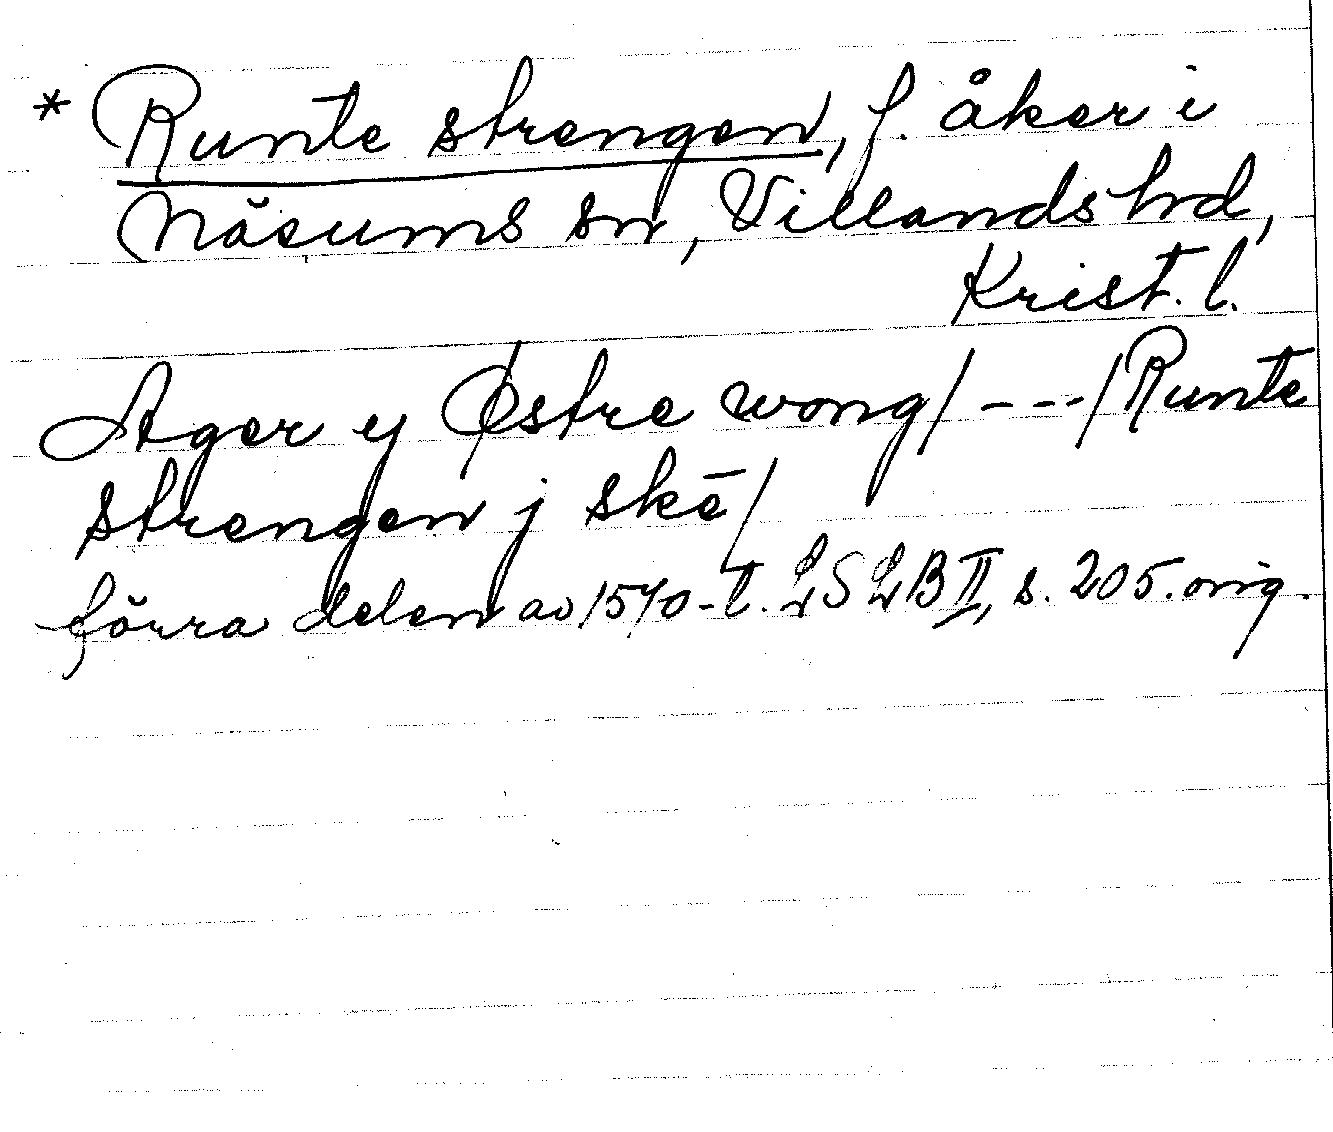 * Runte strengen, f. åker i
Näsums sn, Villands hrd,
Krist. l.
Ager y Østre wong/---/Runte
strengen j skē/
förra delen av 1570-t. LSLB II, s. 205. orig.